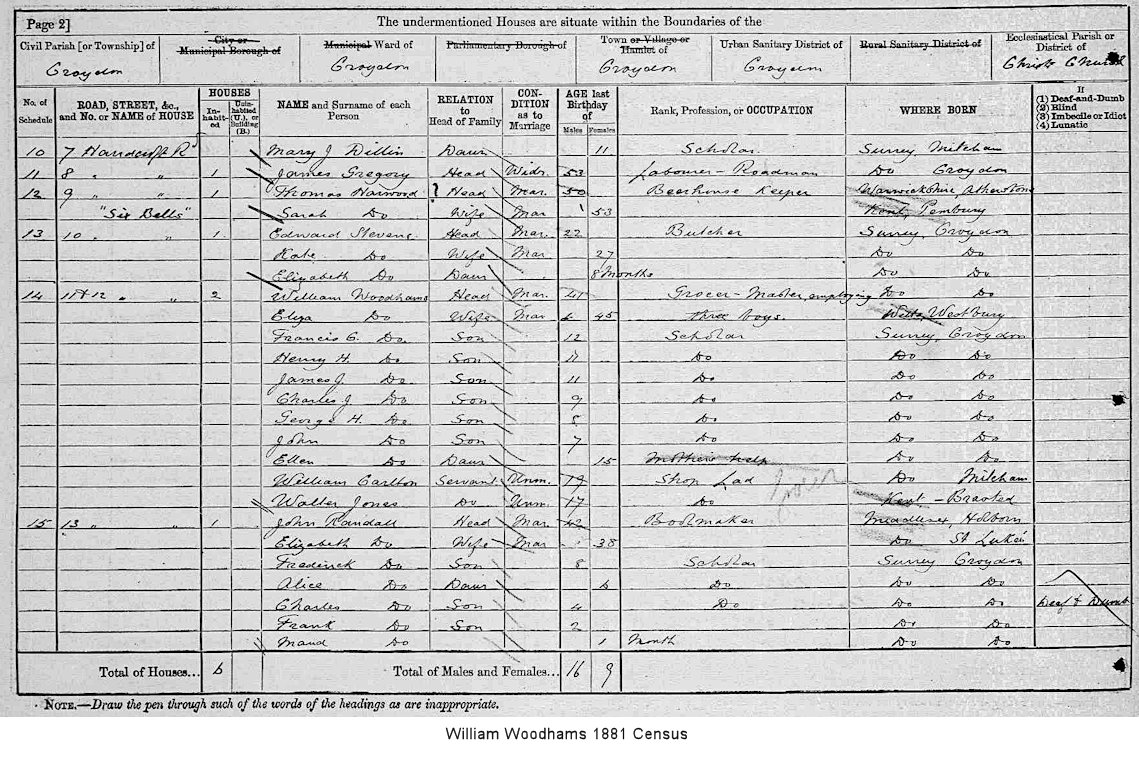 Page 2] The undermentioned Houses are situate within the Boundaries of the
Civil Parish [or Township] of City or Municipal Borough of Municipal Ward of Parliamentary Borough of Town or Village or Hamlet of Urban Sanitary District of Rural Sanitary District of Ecclesiastical Parish or District of
Croydon Croydon Croydon Croydon Christ Church
No. of Schedule ROAD, STREET, &c., and No. or NAME of HOUSE HOUSES In-habit-ed Unin-habited (U.), or Building (B.) NAME and Surname of each Person RELATION to Head of Family CON-DITION as to Marriage AGE last Birthday of Males Females Rank, Profession, or OCCUPATION WHERE BORN If (1) Deaf-and-Dumb (2) Blind (3) Imbecile or Idiot (4) Lunatic
10 7 Handcroft Rd Mary J Daur 11 Scholar Surrey, Mitcham
11 8 " " 1 James Gregory Head Widr. 53 Labourer - Roadman Do Croydon
12 9 " " 1 Thomas Harwood Head Mar. 50 Beerhouse Keeper Warwickshire, Atherstone
"Six Bells" Sarah Do Wife Mar 53 Kent, Pembury
13 10 " " 1 Edward Stevens Head Mar. 22 Butcher Surrey, Croydon
Kate Do Wife Mar 27 Do Do
Elizabeth Do Daur 8 Months Do Do
14 11 & 12 " " 2 William Woodhams Head Mar. 41 Grocer - Master, employing Do Do
Eliza Do Wife Mar 45 three boys. Wilts, Westbury
Francis G. Do Son 12 Scholar Surrey, Croydon
Henry H. Do Son 11 Do Do Do
James J. Do Son 11 Do Do Do
Charles J Do Son 9 Do Do Do
George H. Do Son 8 Do Do Do
John Do Son 7 Do Do Do
Ellen Do Daur 15 Mother's help Do Do
William Carlton Servant Unm. 19 Shop Lad Grocer Do Mitcham
Walter Jones Do Unm. 17 Do Kent - Brasted
15 13 " " 1 John Randall Head Mar 42 Bootmaker Middlesex, Holborn
Elizabeth Do Wife Mar 38 Do St Luke's
Frederick Do Son 8 Scholar Surrey Croydon
Alice Do Daur 6 Do Do Do
Charles Do Son 4 Do Do Do Deaf & Dumb
Frank Do Son 2 Do Do
Maud Do 1 Month Do Do
Total of Houses... 6 Total of Males and Females... 16 9
NOTE.—Draw the pen through such of the words of the headings as are inappropriate.
William Woodhams 1881 Census